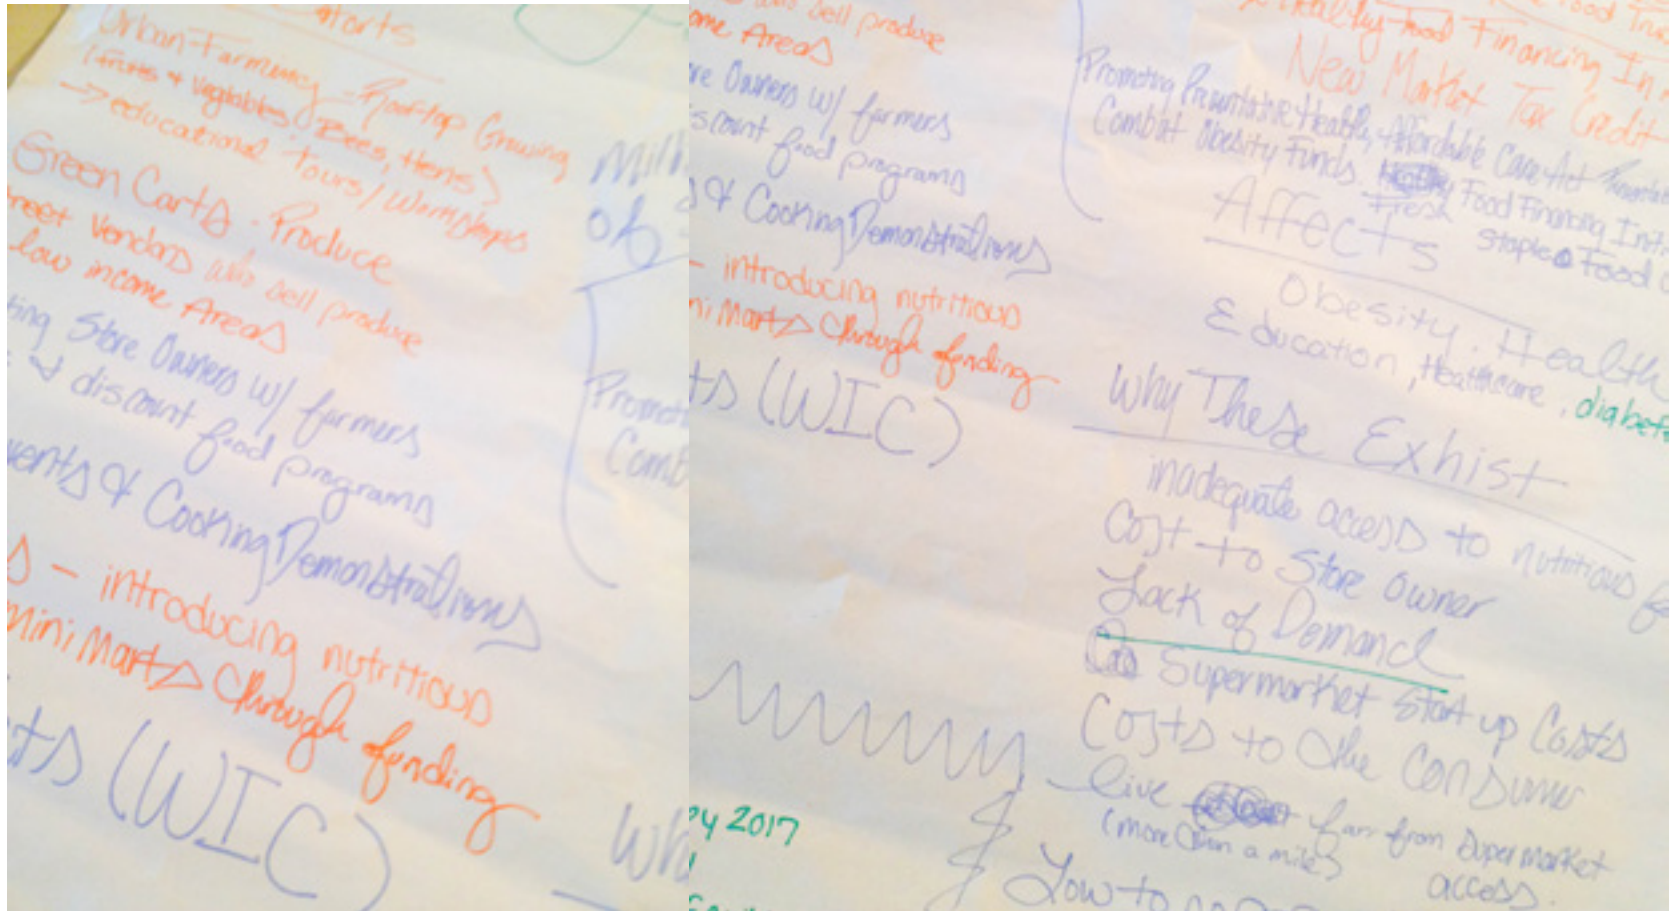 Urban Farming - Rooftop Growing
(fruits & Vegtables, Bees, Hens)
→ educational Tours / Workshops
Green Carts - Produce
Vendors who sell produce
low income Areas
Store Owners w/ farmers
& discount food programs
& Cooking Demonstrations
- introducing nutritious
mini Marts through funding
(WIC)
who sell produce
Areas
Owners w/ farmers
food programs
& Cooking Demonstrations
- introducing nutritious
Marts through funding
(WIC)
2017
Healthy Food Financing
New Market Tax Credit
Promoting Preventative Health, Affordable Care Act
Combat Obesity Funds. Food Financing
Fresh
Staple Food
Affects
Obesity. Health
Education, Healthcare,
Why These Exhist
inadequate access to nutritious
Cost to Store Owner
Lack of Demand
Supermarket Start up Costs
Costs to the Consumer
live far from Supermarket
(more than a mile) access.